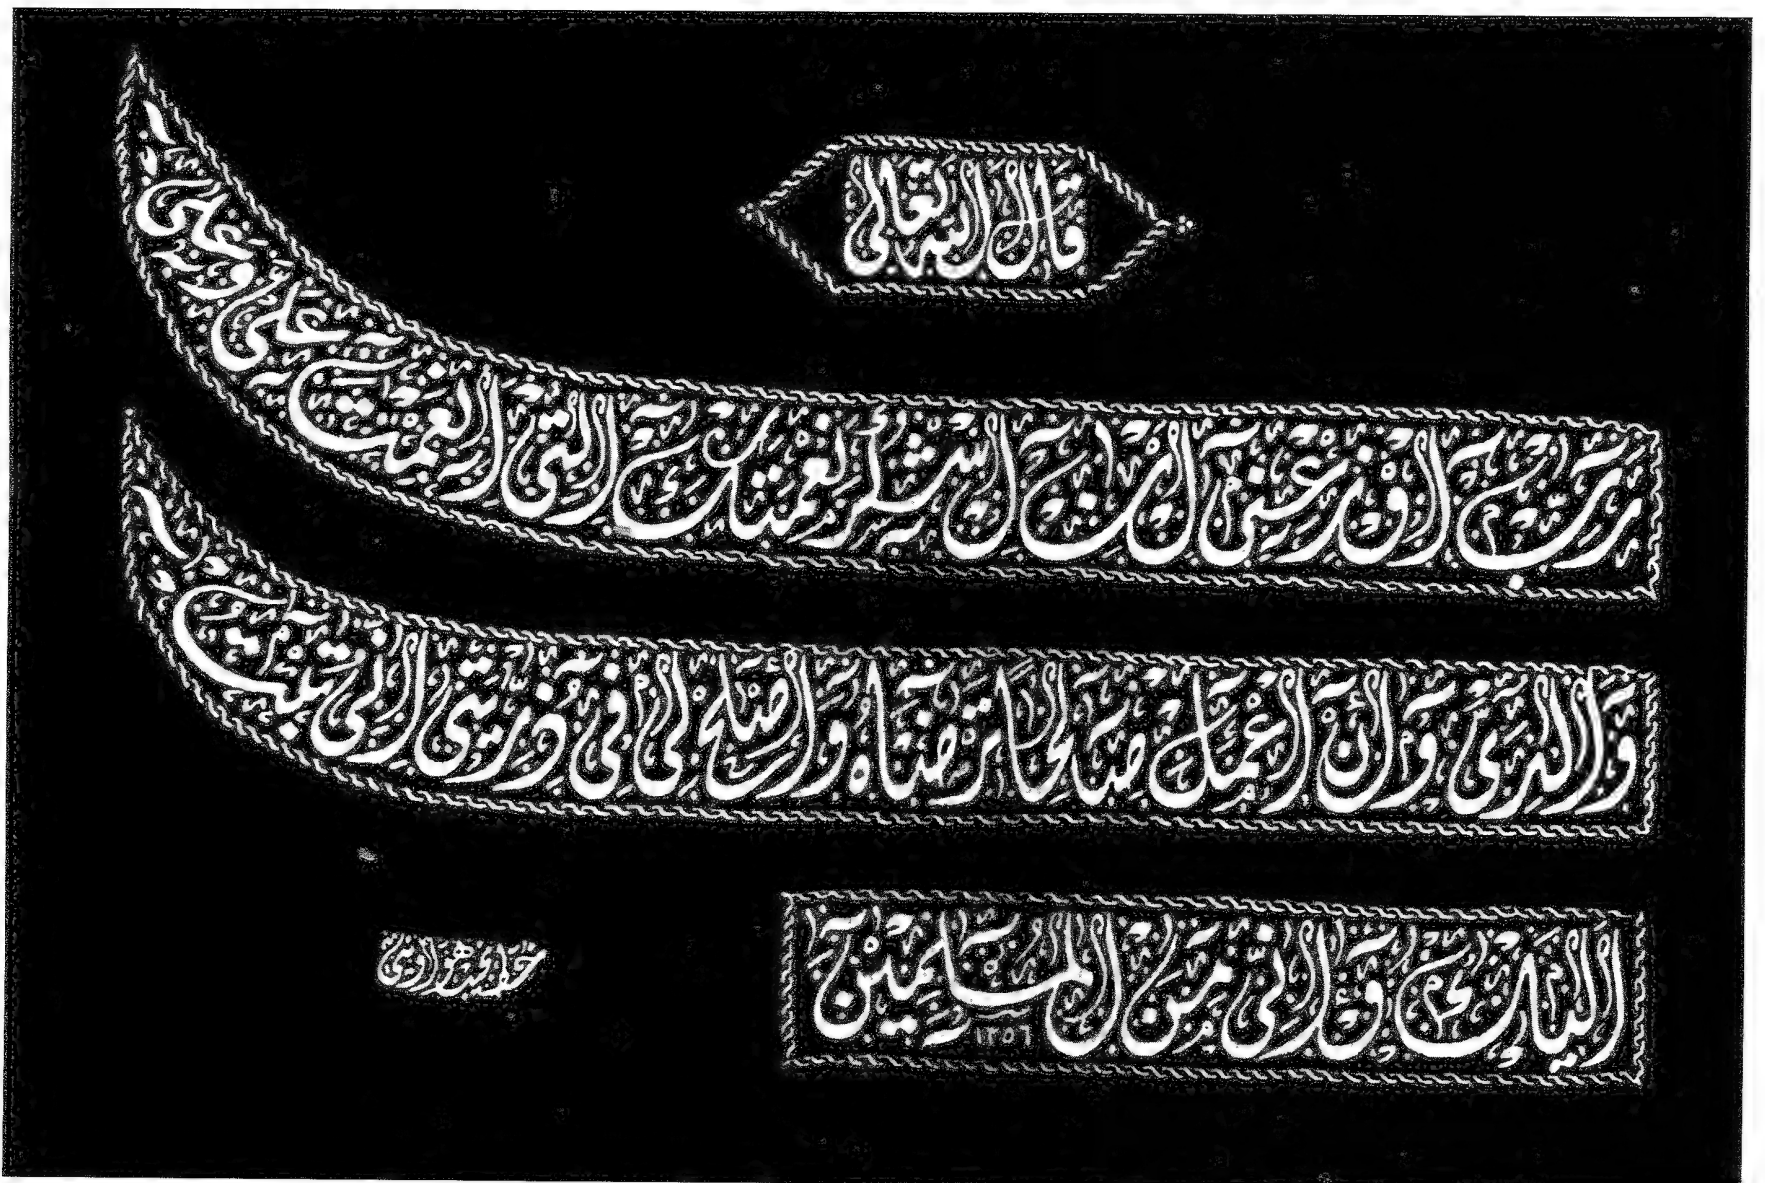 قال الله تعالى
رب اوزعني ان اشكر نعمتك التي انعمت علي وعلى
والدي وأن اعمل صالحا ترضاه وأصلح لي في ذريتي اني تبت
اليك واني من المسلمين
١٣٥٦